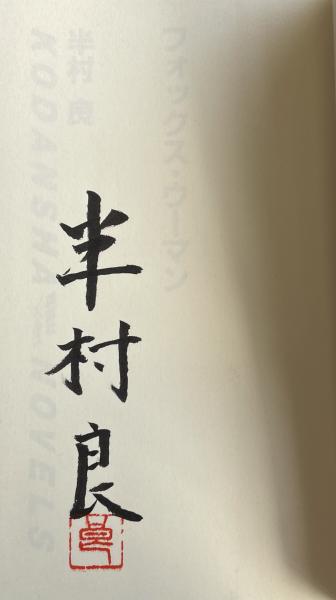 フォックス・ウーマン
半村 良
KODANSHA NOVELS
半村良